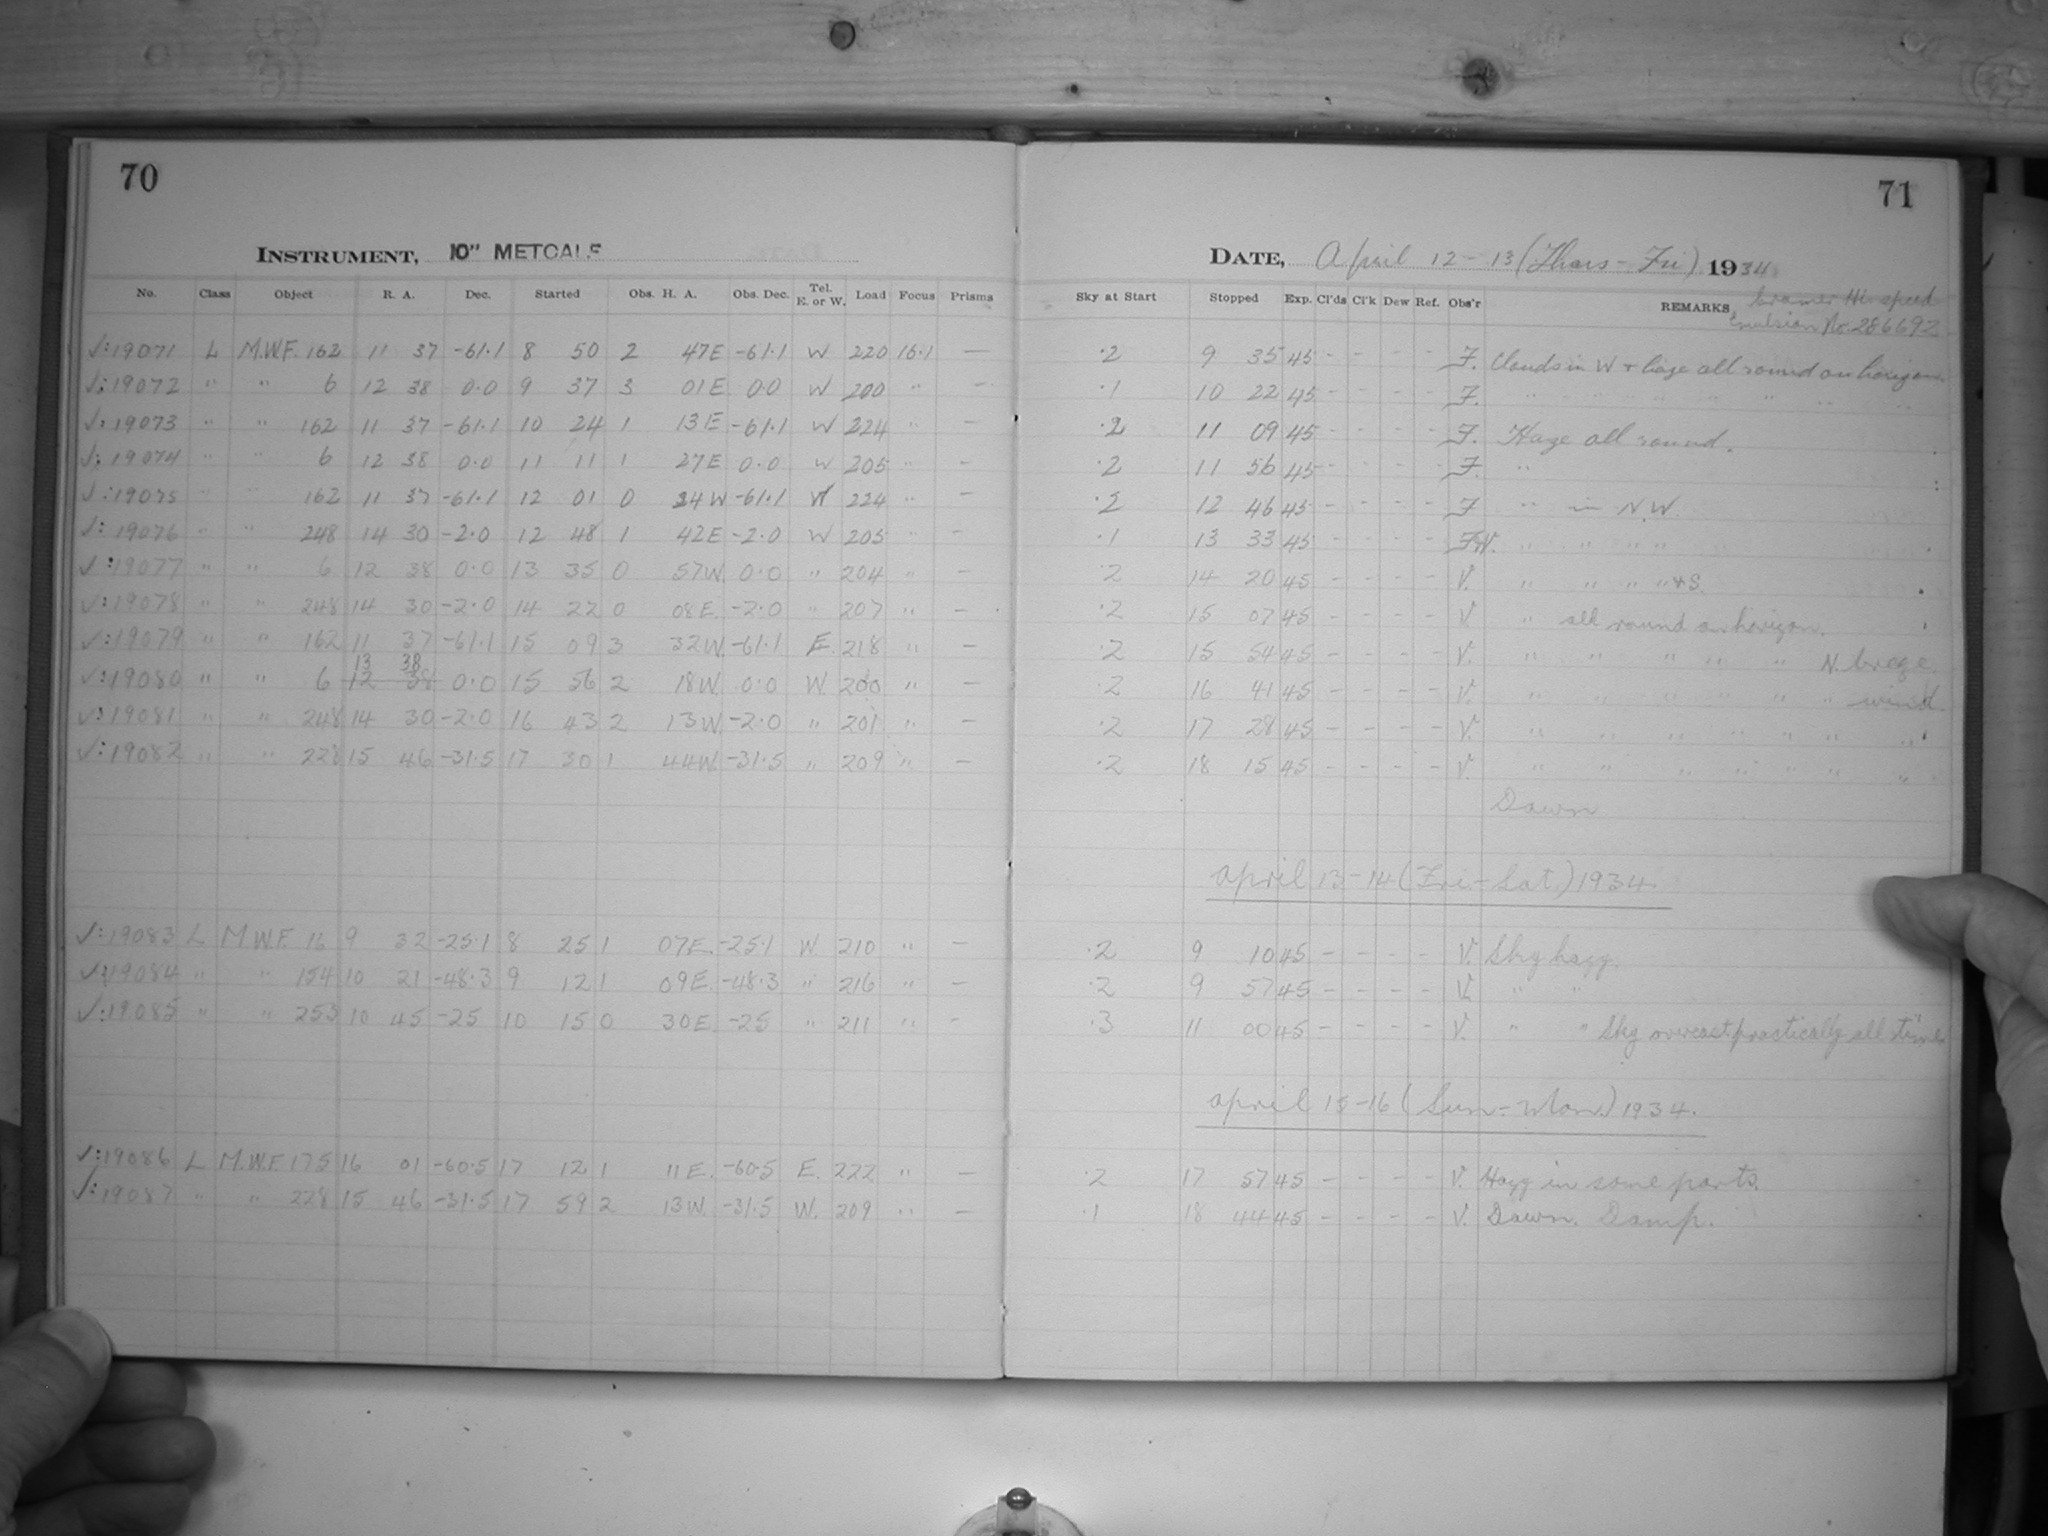 70
71
INSTRUMENT, 10" METCALF
DATE, April 12-13 (Thurs-Fri) 1934
No. Class Object R. A. Dec. Started Obs. H. A. Obs. Dec. Tel. E. or W. Load Focus Prisms Sky at Start Stopped Exp. Cl'ds Cl'k Dew Ref. Obs'r REMARKS
Cramer Hi-speed
Emulsion No. 286692
19071 L M.W.F. 162 11 37 -61.1 8 50 2 47E -61.1 W 220 16.1 — .2 9 35 45 - - - - F. Clouds in W + haze all round on horizon.
19072 " " 6 12 38 0.0 9 37 3 01E 0.0 W 200 " - .1 10 22 45 - - - - F. " " " " " " " " "
19073 " " 162 11 37 -61.1 10 24 1 13E -61.1 W 224 " - .2 11 09 45 - - - - F. Haze all round.
19074 " " 6 12 38 0.0 11 11 1 27E 0.0 W 205 " - .2 11 56 45 - - - - F. "
19075 " " 162 11 37 -61.1 12 01 0 24W -61.1 W 224 " - .2 12 46 45 - - - - F " in N.W.
19076 " " 248 14 30 -2.0 12 48 1 42E -2.0 W 205 " - .1 13 33 45 - - - - " " " "
19077 " " 6 12 38 0.0 13 35 0 57W. 0.0 " 204 " - .2 14 20 45 - - - - V. " " " " + S.
19078 " " 248 14 30 -2.0 14 22 0 08E. -2.0 " 207 " - .2 15 07 45 - - - - V. " all round on horizon.
19079 " " 162 11 37 -61.1 15 09 3 32W. -61.1 E. 218 " - .2 15 54 45 - - - - V. " " " " " N. breeze.
13 38
19080 " " 6 12 38 0.0 15 56 2 18W. 0.0 W. 200 " - .2 16 41 45 - - - - V. " " " " " " wind.
19081 " " 248 14 30 -2.0 16 43 2 13W. -2.0 " 201 " - .2 17 28 45 - - - - V. " " " " " " "
19082 " " 228 15 46 -31.5 17 30 1 44W. -31.5 " 209 " - .2 18 15 45 - - - - V. " " " " " " "
Dawn
April 13-14 (Fri.-Sat.) 1934.
19083 L M.W.F. 16 9 32 -25.1 8 25 1 07E. -25.1 W. 210 " - .2 9 10 45 - - - - V. Sky hazy.
19084 " " 154 10 21 -48.3 9 12 1 09E. -48.3 " 216 " - .2 9 57 45 - - - - V. " "
19085 " " 253 10 45 -25 10 15 0 30E. -25 " 211 " - .3 11 00 45 - - - - V. " " Sky overcast practically all time
April 15-16 (Sun.-Mon.) 1934.
19086 L M.W.F. 175 16 01 -60.5 17 12 1 11E. -60.5 E. 222 " - .2 17 57 45 - - - - V. Hazy in some parts.
19087 " " 228 15 46 -31.5 17 59 2 13W. -31.5 W. 209 " - .1 18 44 45 - - - - V. Dawn. Damp.